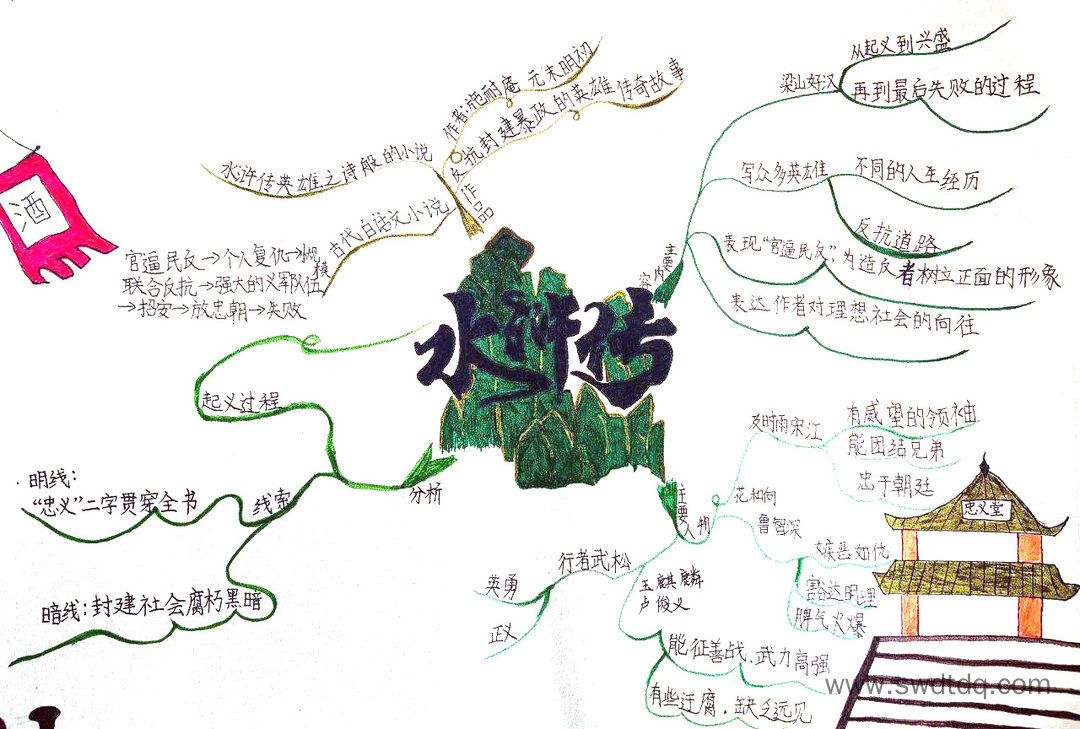 水浒传
作品
作者:施耐庵 元末明初
反抗封建暴政的英雄传奇故事
水浒传英雄之诗般的小说
古代白话文小说
酒
官逼民反→个人复仇→小规模
联合反抗→强大的义军队伍
→招安→放忠朝→失败
起义过程
分析
线索
明线:
“忠义”二字贯穿全书
暗线:封建社会腐朽黑暗
主要内容
梁山好汉
从起义到兴盛
再到最后失败的过程
写众多英雄
不同的人生经历
反抗道路
表现“官逼民反”,为造反者树立正面的形象
表达作者对理想社会的向往
主要人物
及时雨宋江
有威望的领袖
能团结兄弟
忠于朝廷
花和尚
鲁智深
嫉恶如仇
豁达明理
脾气火爆
玉麒麟
卢俊义
能征善战、武力高强
有些迂腐,缺乏远见
行者武松
英勇
正义
忠义堂
www.swdtdq.com